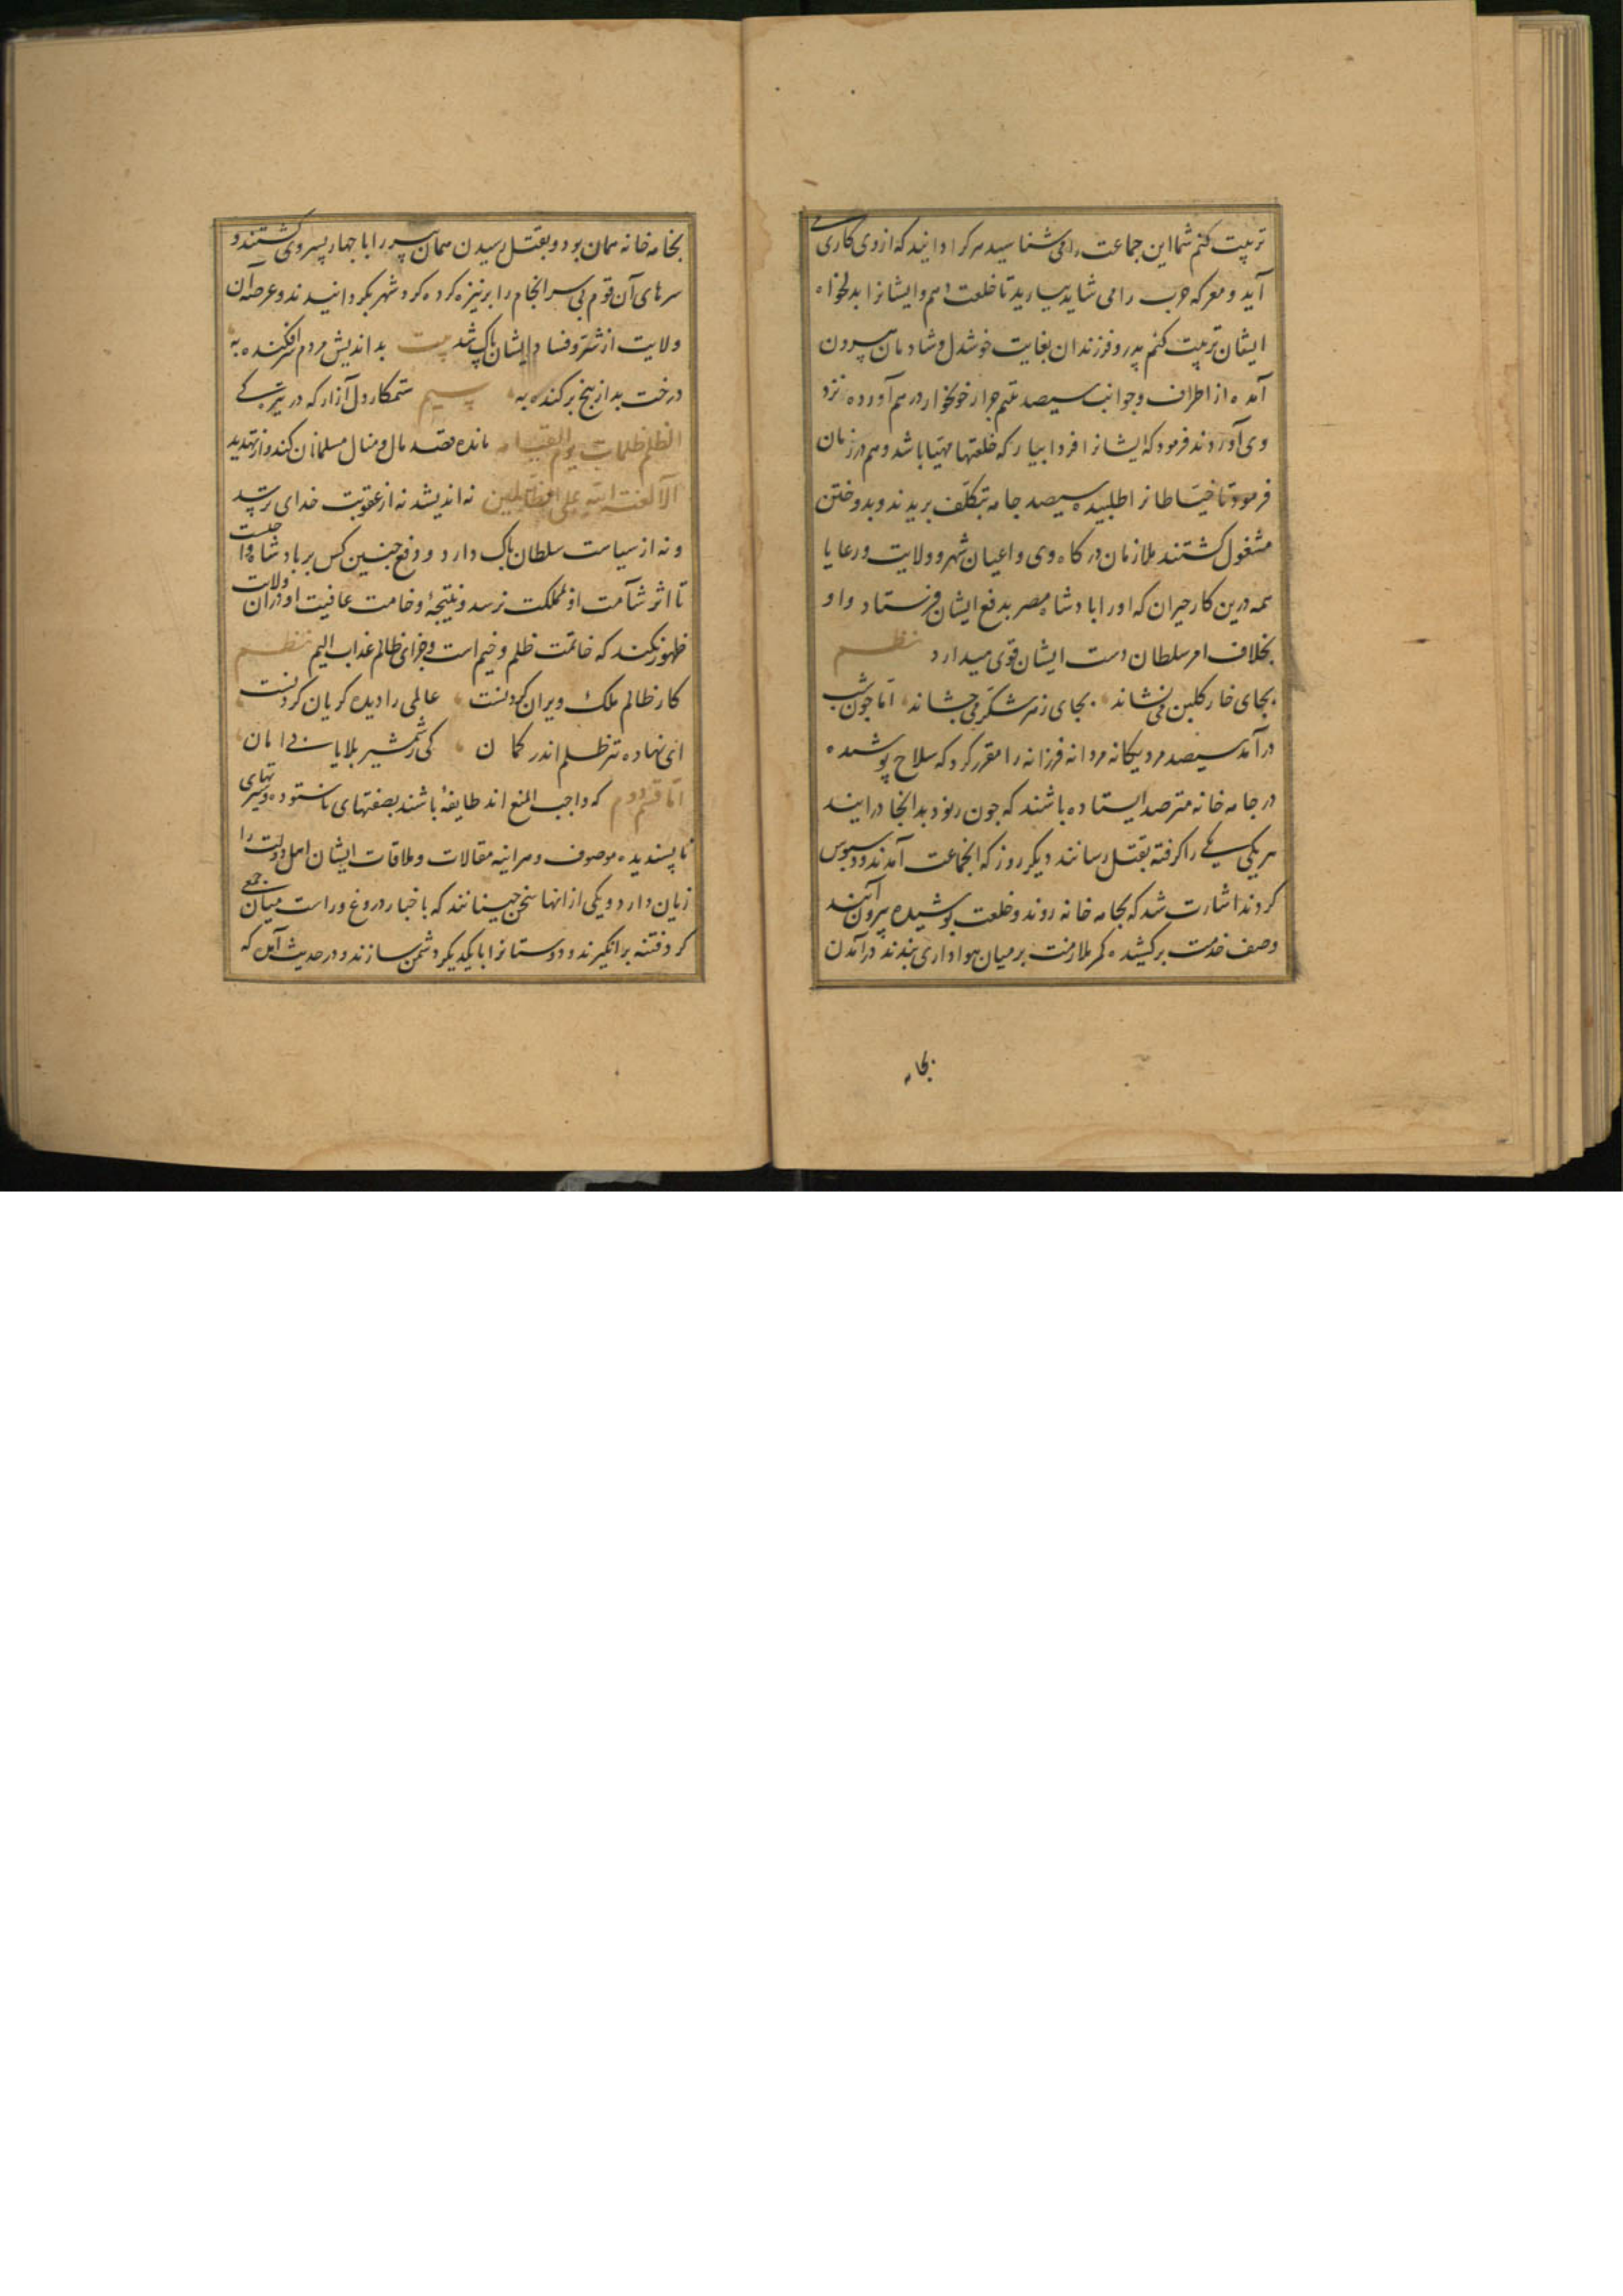 تربیت کنم شما این جماعت را می شناسید هر کرا دانید که از وی کاری
آید و معرکه حرب را می شاید بیارید تا خلعت دهم و ایشانرا بدلخواه
ایشان تربیت کنم پدر و فرزندان بغایت خوشدل و شادمان بیرون
آمده از اطراف و جوانب سیصد خونخوار درهم آورده نزد
وی آوردند فرمود که ایشانرا فردا بیار که خلعتها مهیا باشد و هم در زمان
فرمود تا خیاطانرا طلبیده سیصد جامه بتکلف بریدند و بدوختن
مشغول کشتند ملازمان درکاه وی و اعیان شهر و ولایت و رعایا
همه درین کار حیران که او را پادشاه مصر بدفع ایشان فرستاد و او
بخلاف امر سلطان دست ایشان قوی میدارد نظم
بجای خار کلبن می نشاند بجای زهر شکر می چشاند اما چون شب
درآمد سیصد مرد یکانه مردانه فرزانه را مقرر کرد که سلاح پوشیده
در جامه خانه مترصد ایستاده باشند که چون رنود بدانجا درآیند
هر یکی یکی را کرفته بقتل رسانند دیکر روز که آنجماعت آمدند و دستبوس
کردند اشارت شد که بجامه خانه روند و خلعت پوشیده بیرون آیند
و صف خدمت برکشیده کمر ملازمت بر میان هواداری بندند درآمدن
بجامه
بجامه خانه همان بود و بقتل رسیدن همان پیر را با چهار پسر وی کشتند و
سرهای آن قوم بی سرانجام را بر نیزه کرده کرد شهر بکردانیدند و عرصه آن
ولایت از شر و فساد ایشان پاک شد بیت بد اندیش مردم سرافکنده به
درخت بد از بیخ برکنده به سیم ستمکار دل آزار که در تیرگی
الظلم ظلمات یوم القیامه مانده قصد مال و منال مسلمانان کند و از تهدید
الا لعنة الله علی الظالمین نه اندیشد نه از عقوبت خدای ترسد
و نه از سیاست سلطان باک دارد و دفع چنین کس بر پادشاه واجبست
تا اثر شآمت او بمملکت نرسد و نتیجهٔ وخامت عاقبت او در آن ولایت
ظهور نکند که خاتمت ظلم وخیم است و جزای ظالم عذاب الیم نظم
کار ظالم ملک ویران کردنست عالمی را دیده کریان کردنست
ای نهاده تیر ظلم اندر کمان کی ز شمشیر بلا یابی امان
اما قسم دوم که واجب المنع اند طایفهٔ باشند بصفتهای ناستوده و سیرتهای
ناپسندیده موصوف و هرآینه مقالات و ملاقات ایشان اهل دولت را
زیان دارد و یکی از انها سخن چینانند که باخبار دروغ و راست میان جمعی
کرد فتنه برانکیزند و دوستانرا با یکدیکر دشمن سازند و در حدیث آمده که